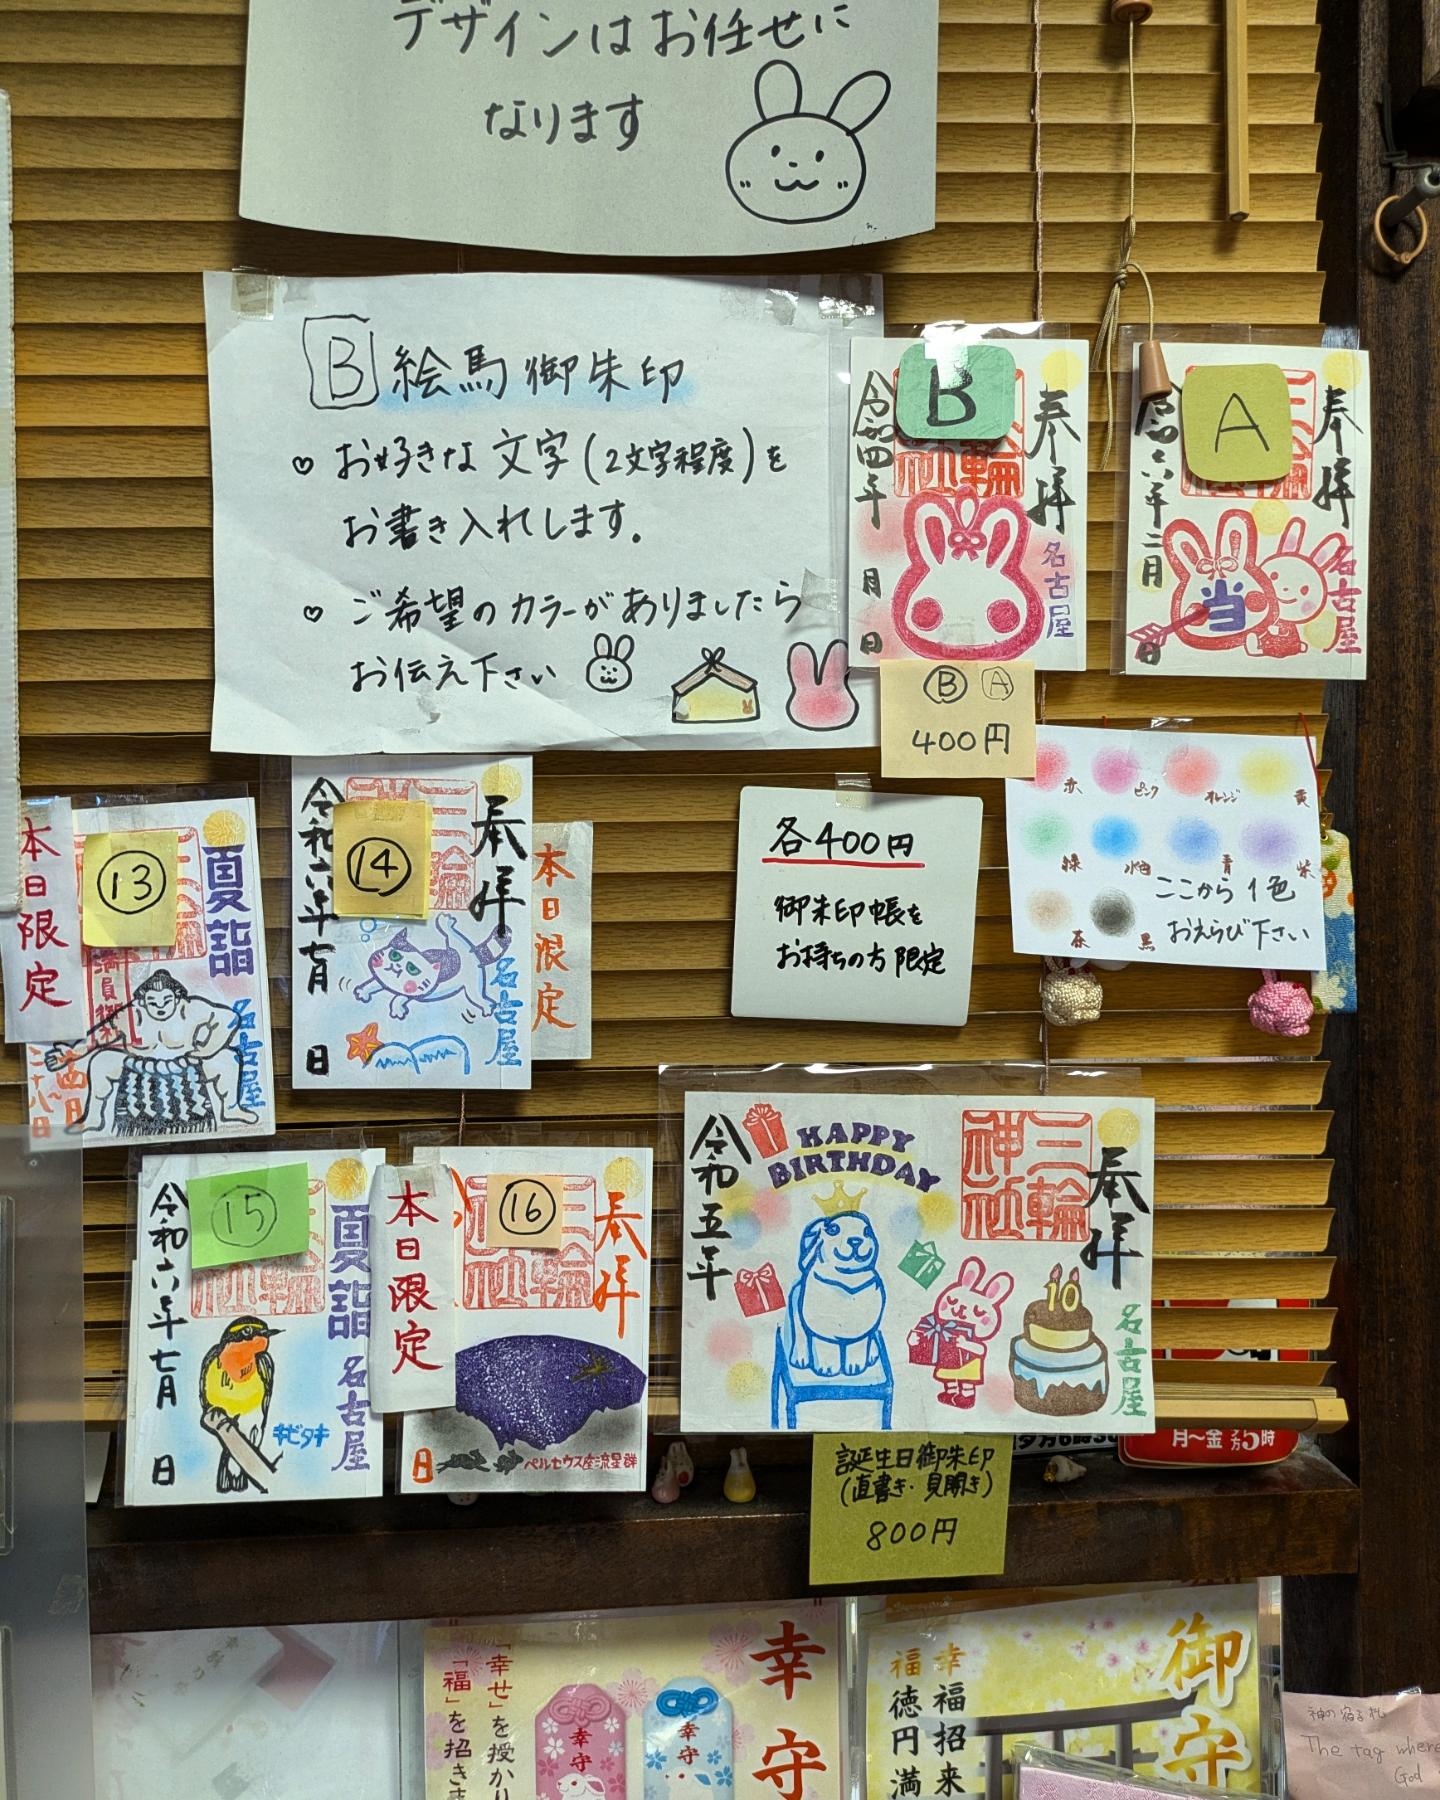 デザインはお任せに
なります
B 絵馬御朱印
♡ お好きな文字(2文字程度)を
お書き入れします。
♡ ご希望のカラーがありましたら
お伝え下さい
B
奉拝
三輪
神社
令和四年 月 日
名古屋
A
奉拝
令和六年二月 日
当
名古屋
Ⓑ Ⓐ
400円
赤 ピンク オレンジ 黄
緑 水色 青 紫
茶 黒
ここから1色
おえらび下さい
各400円
御朱印帳を
お持ちの方限定
本日限定
⑬
夏詣
名古屋
⑭
奉拝
令和六年七月 日
名古屋
本日限定
⑮
夏詣
令和六年七月 日
キビタキ
名古屋
本日限定
⑯
奉拝
日
ペルセウス座流星群
HAPPY
BIRTHDAY
奉拝
三輪
神社
令和五年
10
名古屋
誕生日御朱印
(直書き・見開き)
800円
月〜金 夕方5時
幸守
「幸せ」を授かり
「福」を招きま
幸守
幸守
御守
幸福招来
福徳円満
神の宿る札
The tag where
God